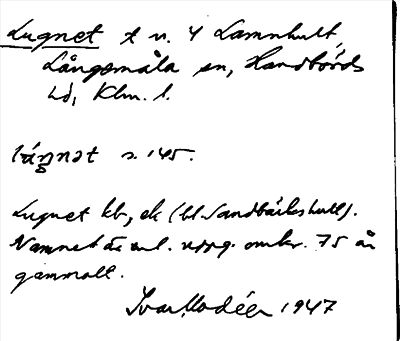 Lugnet t n. 4 Lamnhult,
Långemåla sn, Handbörds
hd, Klm. l.
lúŋnət s. 145.
Lugnet lb, ek (bl. Sandbäckshult).
Namnet är enl. uppg. omkr. 75 år
gammalt.
Ivar Modéer 1947